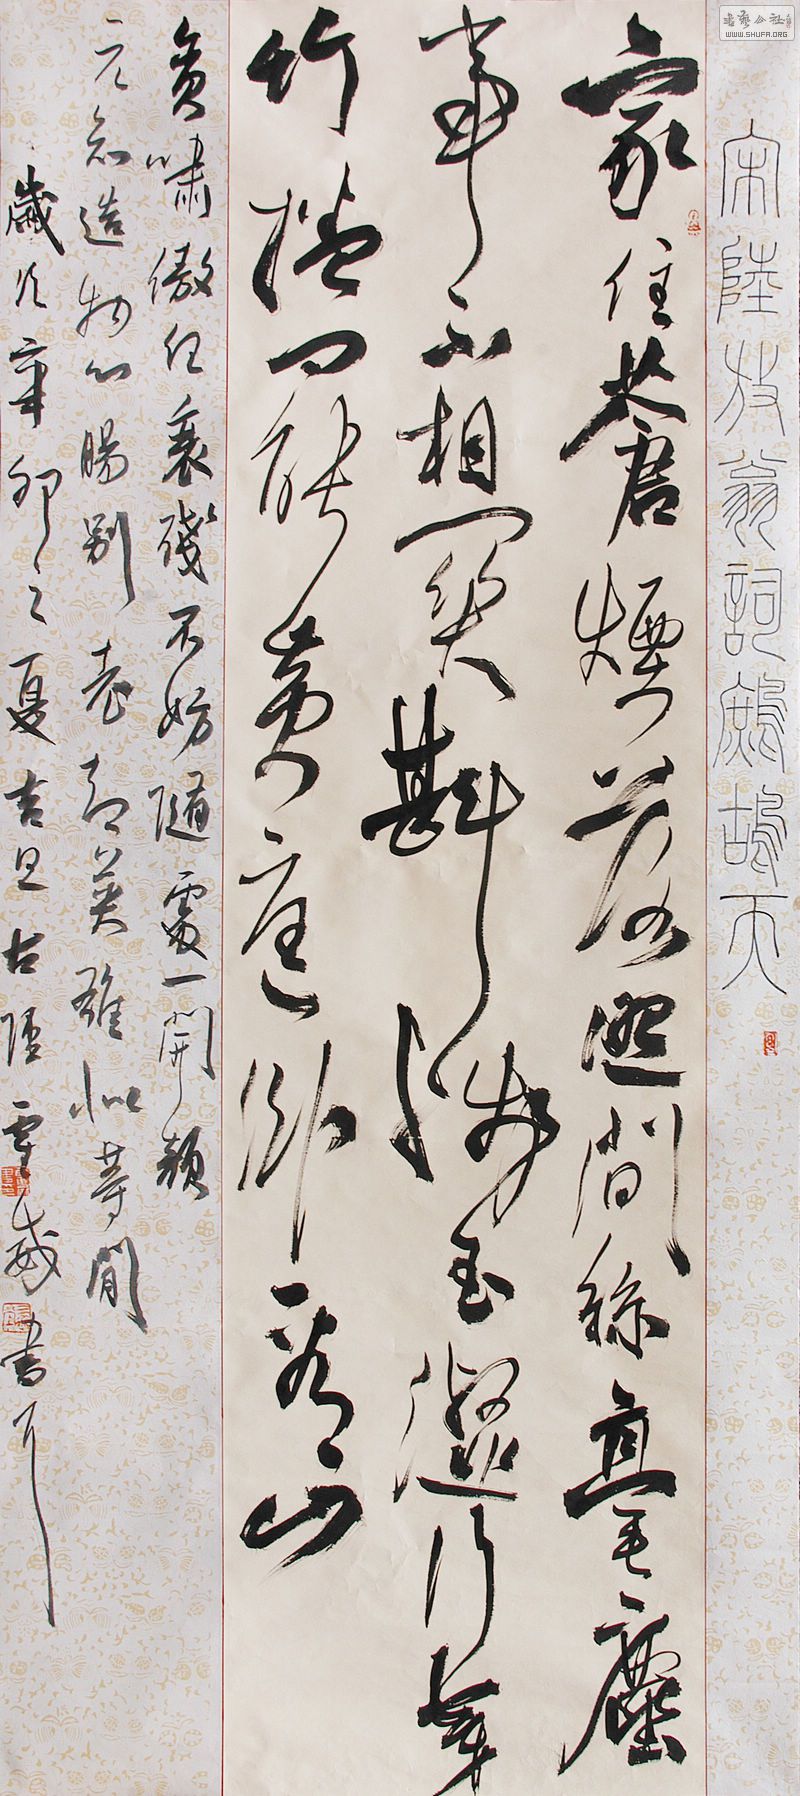 书艺公社
WWW.SHUFA.ORG
宋陸放翁詞鷓鴣天
家住蒼煙落照間絲毫塵
事不相關斟殘玉瀣行穿
竹捲罷黃庭卧看山
貪嘯傲任衰殘不妨隨處一開顏
元知造物心腸別老却英雄似等閒
歲次辛卯之夏吉旦古陘 書